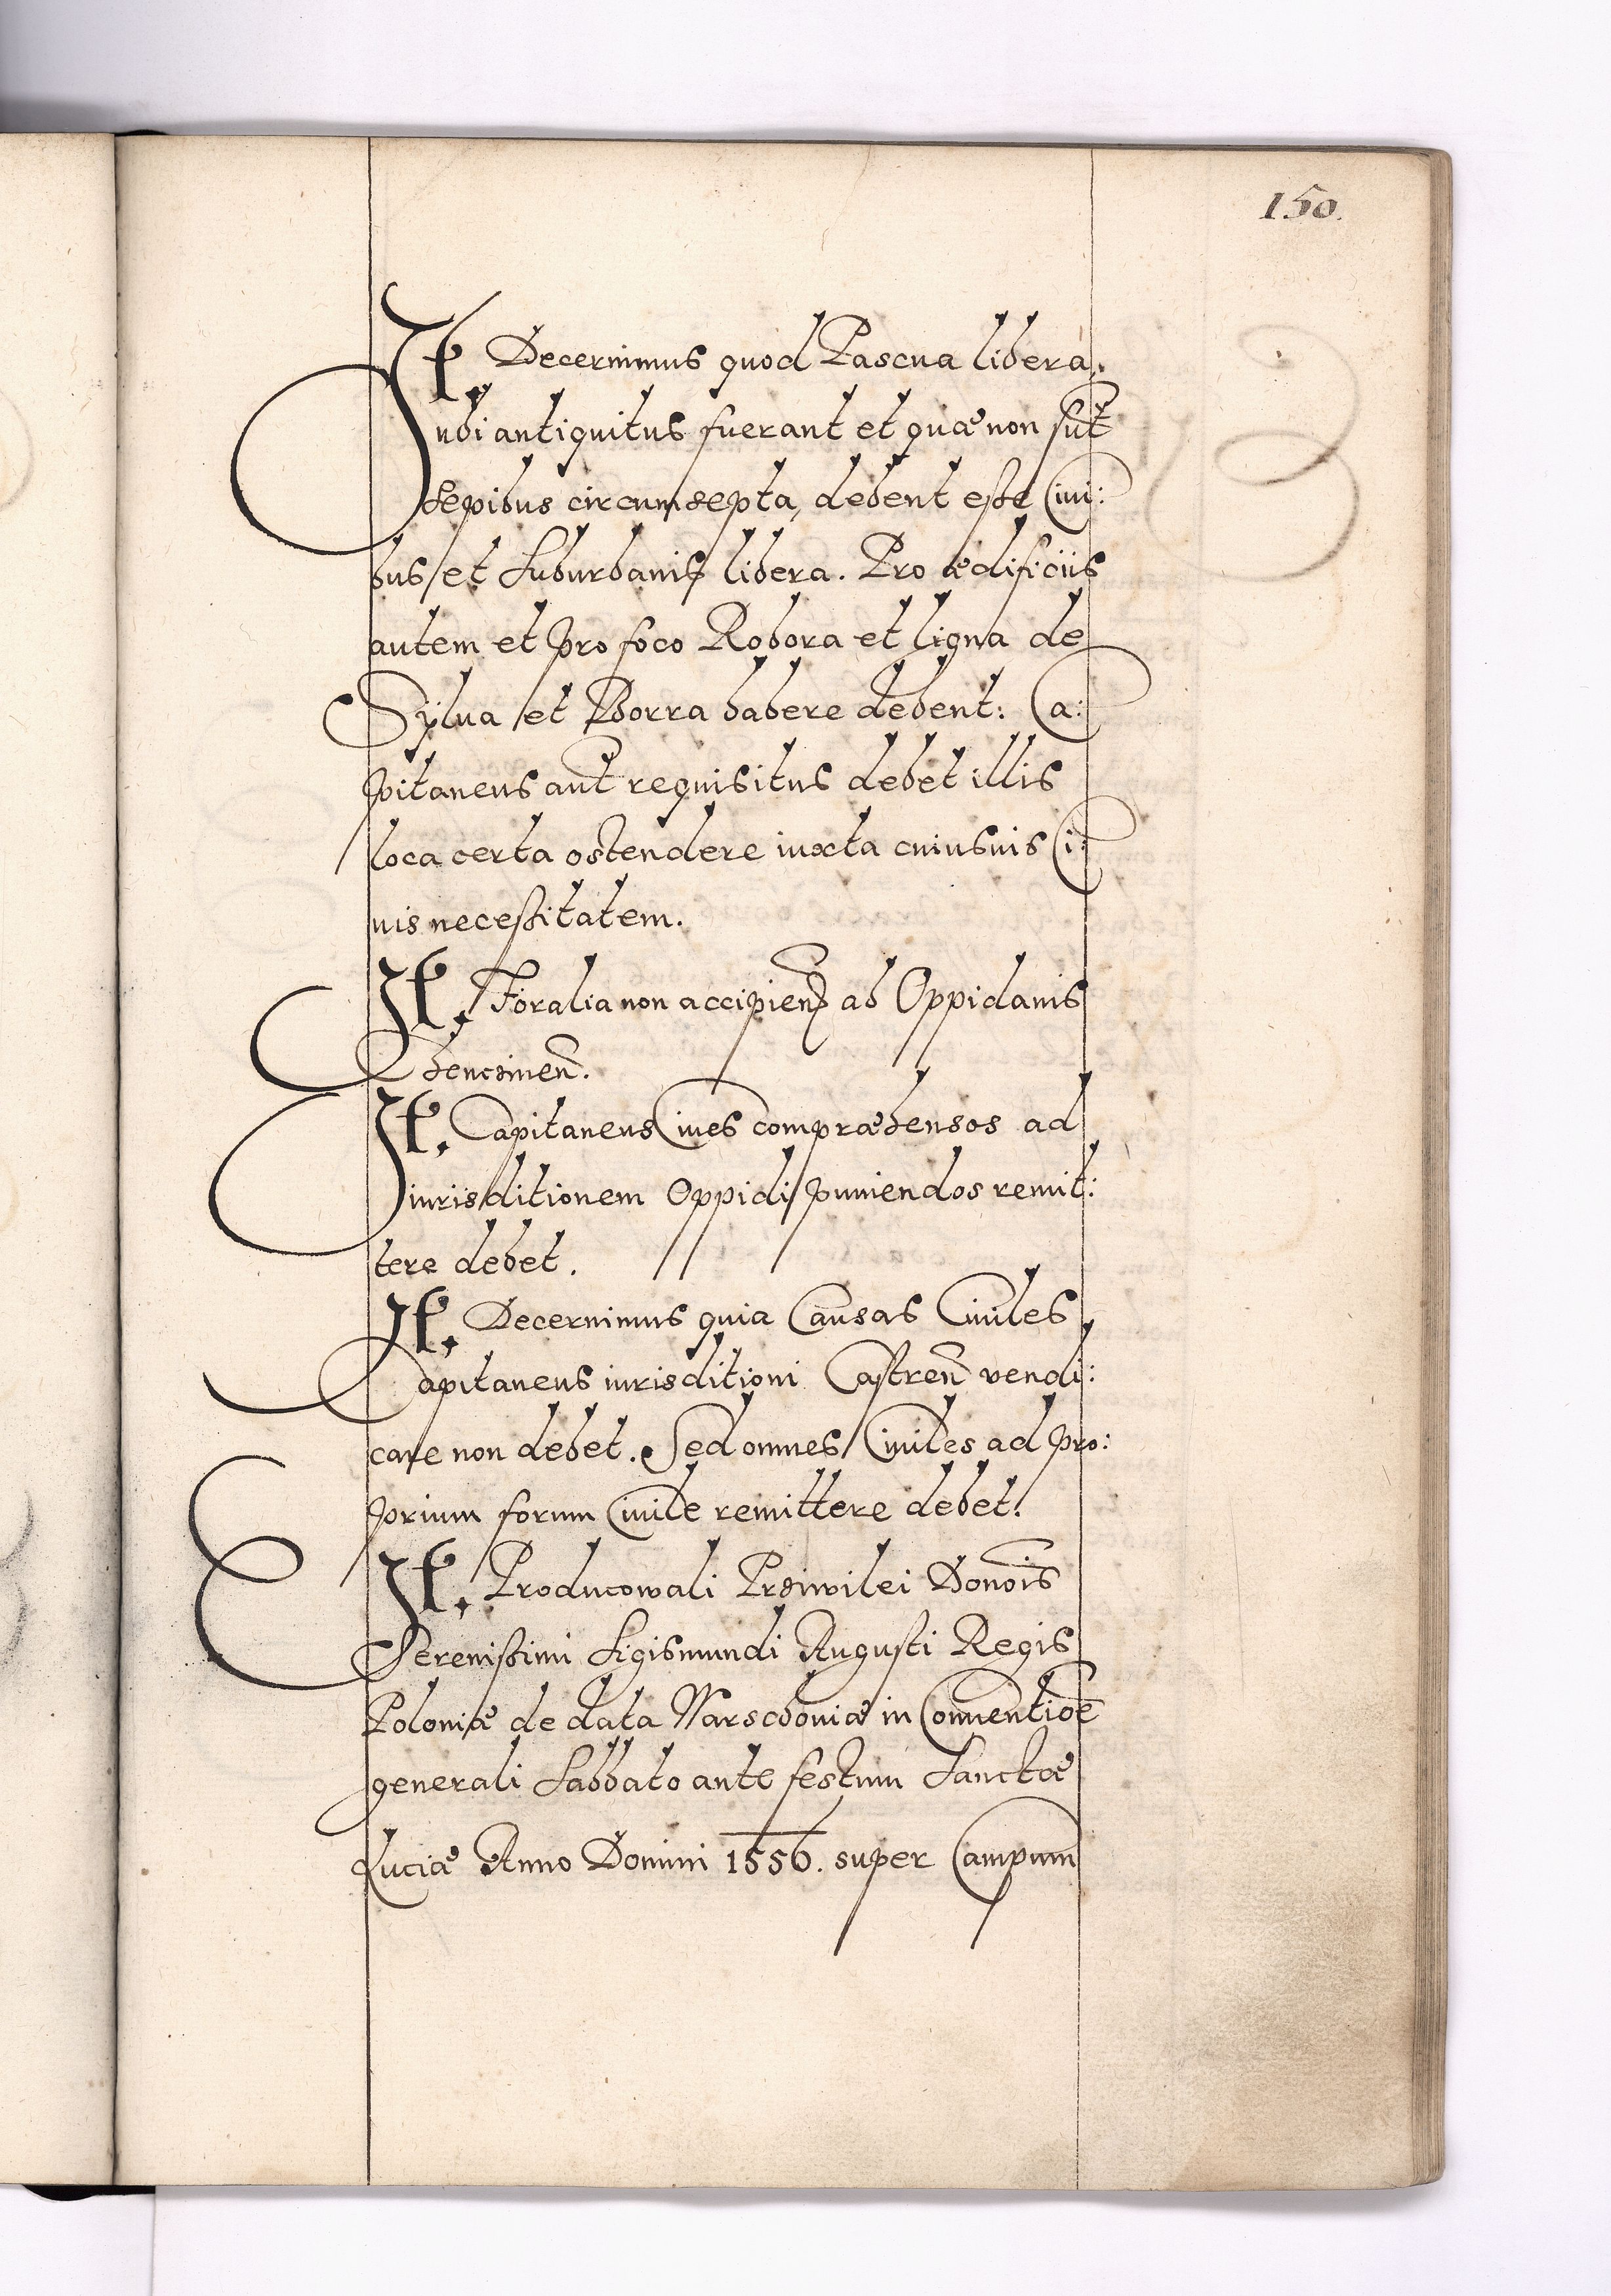 150.
It. Decernimus quod Pascua libera,
ubi antiquitus fuerant et quæ non sūt
sepibus circumsepta, debent esse Civi:
bus et Suburbanis libera. Pro ædificiis
autem et pro foco Robora et ligna de
Sylva et Borra habere debent: Ca:
pitaneus aūt requisitus debet illis
loca certa ostendere iuxta cuiusvis Ci:
vis necessitatem.
It. Foralia non accipienꝫ ab Oppidanis
Chencinen̄.
It. Capitaneus Cives compræhensos ad
iurisditionem Oppidi puniendos remit:
tere debet.
It. Decernimus quia Causas Civiles
Capitaneus iurisditioni Castren̄ vendi:
care non debet. Sed omnes Civiles ad pro:
prium forum Civile remittere debet.
It. Producowali Prziwilei Donōis
Serenissimi Sigismundi Augusti Regis
Poloniæ de data Warschoviæ in Conventiōe
generali Sabbato ante festum Sanctæ
Luciæ Anno Domini 1556. super Campum